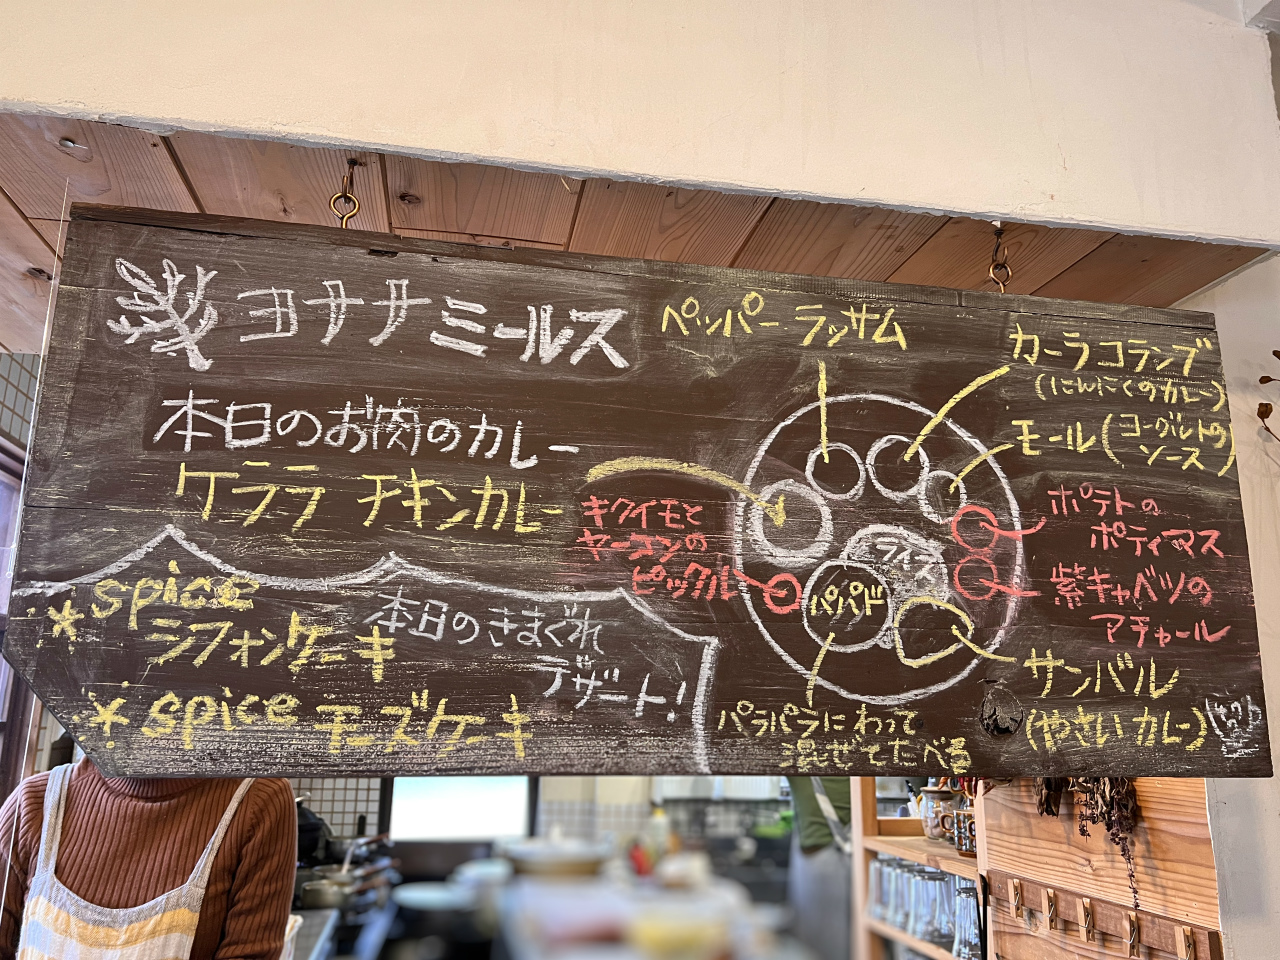 ヨナナミールス
本日のお肉のカレー
ケララ チキンカレー
*spice
シフォンケーキ
本日のきまぐれ
デザート!
*spice チーズケーキ
ペッパーラッサム
カーラコランブ
(にんにくのカレー)
モール(ヨーグルトの
ソース)
キクイモと
ヤーコンの
ピックル
ポテトの
ポディマス
紫キャベツの
アチャール
ライス
パパド
サンバル
(やさいカレー)
パラパラにわって
混ぜてたべる